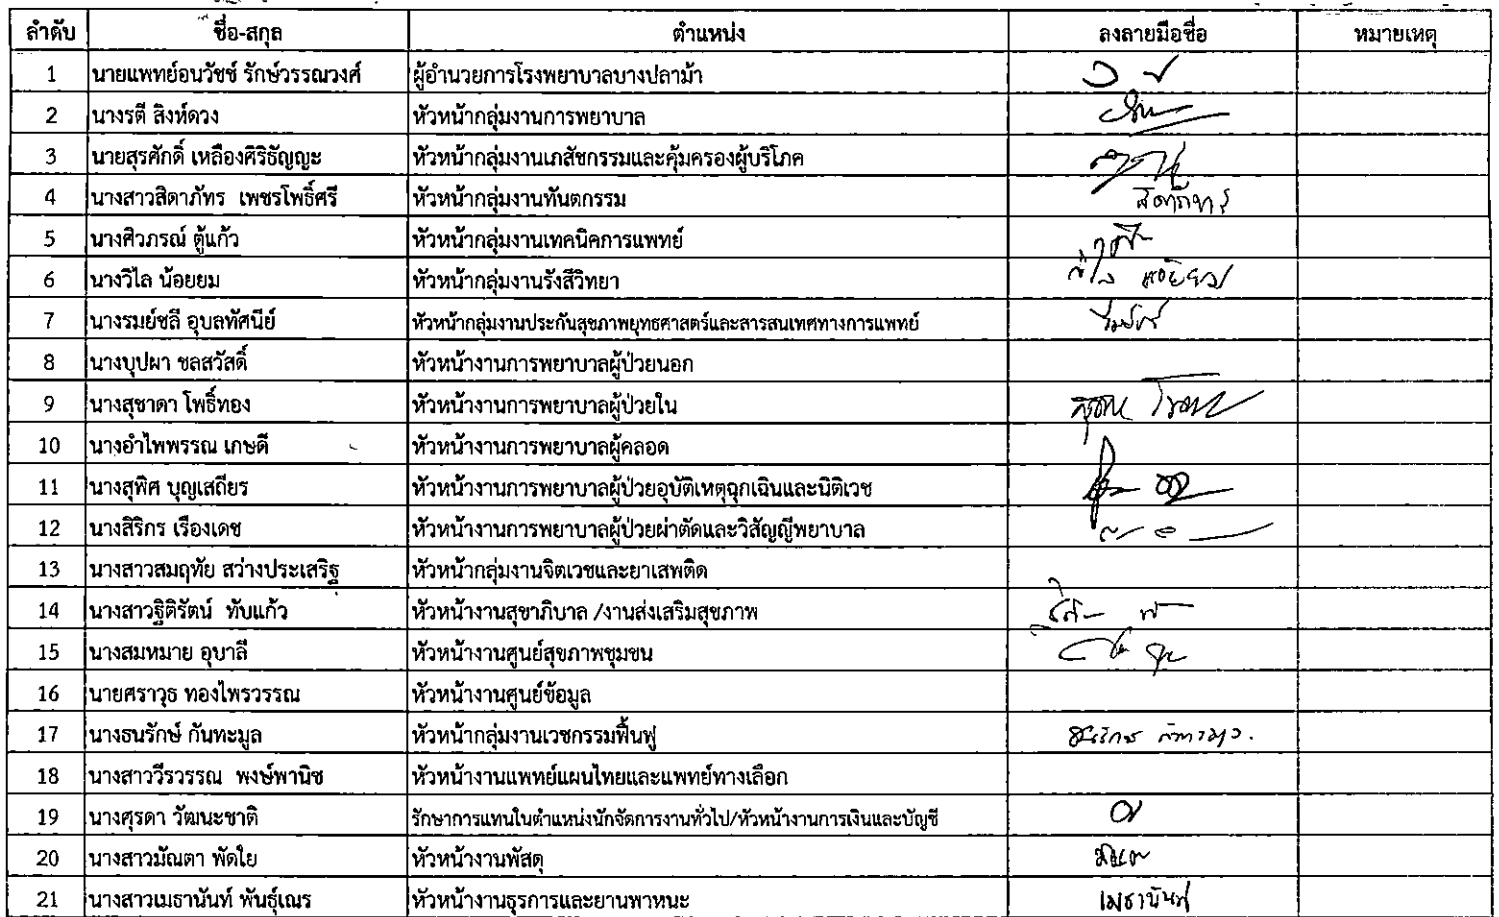 ลำดับ ชื่อ-สกุล ตำแหน่ง ลงลายมือชื่อ หมายเหตุ
1 นายแพทย์อนวัชช์ รักษ์วรรณวงศ์ ผู้อำนวยการโรงพยาบาลบางปลาม้า
2 นางรตี สิงห์ดวง หัวหน้ากลุ่มงานการพยาบาล
3 นายสุรศักดิ์ เหลืองศิริธัญญะ หัวหน้ากลุ่มงานเภสัชกรรมและคุ้มครองผู้บริโภค
4 นางสาวสิดาภัทร เพชรโพธิ์ศรี หัวหน้ากลุ่มงานทันตกรรม สิดาภัทร
5 นางศิวภรณ์ ตู้แก้ว หัวหน้ากลุ่มงานเทคนิคการแพทย์
6 นางวิไล น้อยยม หัวหน้ากลุ่มงานรังสีวิทยา วิไล น้อยยม
7 นางรมย์ชลี อุบลทัศนีย์ หัวหน้ากลุ่มงานประกันสุขภาพยุทธศาสตร์และสารสนเทศทางการแพทย์
8 นางบุปผา ชลสวัสดิ์ หัวหน้างานการพยาบาลผู้ป่วยนอก
9 นางสุชาดา โพธิ์ทอง หัวหน้างานการพยาบาลผู้ป่วยใน
10 นางอำไพพรรณ เกษดี หัวหน้างานการพยาบาลผู้คลอด
11 นางสุพิศ บุญเสถียร หัวหน้างานการพยาบาลผู้ป่วยอุบัติเหตุฉุกเฉินและนิติเวช
12 นางสิริกร เรืองเดช หัวหน้างานการพยาบาลผู้ป่วยผ่าตัดและวิสัญญีพยาบาล
13 นางสาวสมฤทัย สว่างประเสริฐ หัวหน้ากลุ่มงานจิตเวชและยาเสพติด
14 นางสาวฐิติรัตน์ ทับแก้ว หัวหน้างานสุขาภิบาล /งานส่งเสริมสุขภาพ
15 นางสมหมาย อุบาลี หัวหน้างานศูนย์สุขภาพชุมชน
16 นายศราวุธ ทองไพรวรรณ หัวหน้างานศูนย์ข้อมูล
17 นางธนรักษ์ กันทะมูล หัวหน้ากลุ่มงานเวชกรรมฟื้นฟู
18 นางสาววีรวรรณ พงษ์พานิช หัวหน้างานแพทย์แผนไทยและแพทย์ทางเลือก
19 นางศุรดา วัฒนะชาติ รักษาการแทนในตำแหน่งนักจัดการงานทั่วไป/หัวหน้างานการเงินและบัญชี
20 นางสาวมัณตา พัดใย หัวหน้างานพัสดุ
21 นางสาวเมธานันท์ พันธุ์เณร หัวหน้างานธุรการและยานพาหนะ เมธานันท์